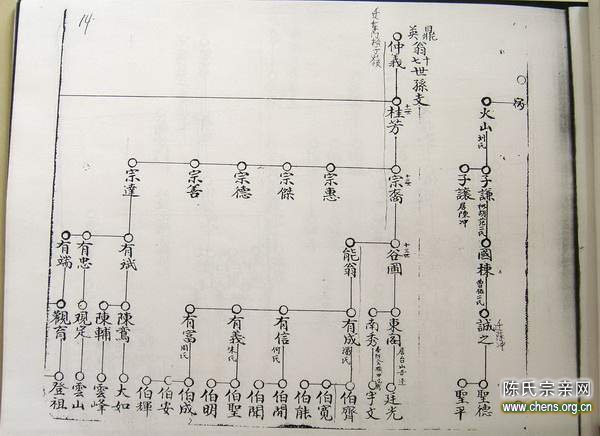 14
鼎
英翁十七世孫支
仲義
桂芳
火山
刘氏
宗達
宗善
宗德
宗傑
宗惠
宗裔
子讓
子謙
有端
有忠
有斌
能翁
谷圃
國棟
觀育
观定
陳輔
陳鸞
有富
周氏
有義
朱氏
有信
何氏
有成
南秀
東閣
誠之
登祖
雲山
雲峰
大如
伯輝
伯安
伯成
伯明
伯聖
伯聞
伯開
伯能
伯寬
伯齊
宇文
廷光
聖平
聖德
陈氏宗亲网
www.chens.org.cn